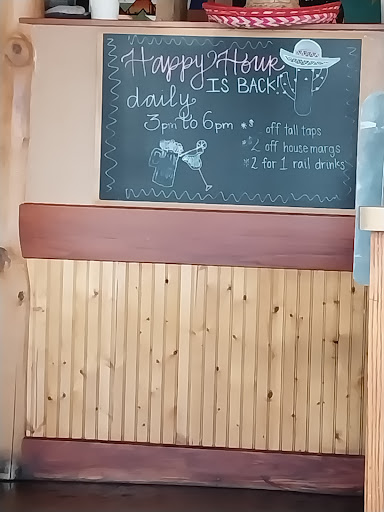 Happy Hour
IS BACK!
daily
3pm to 6pm
off tall taps
2 off house margs
2 for 1 rail drinks